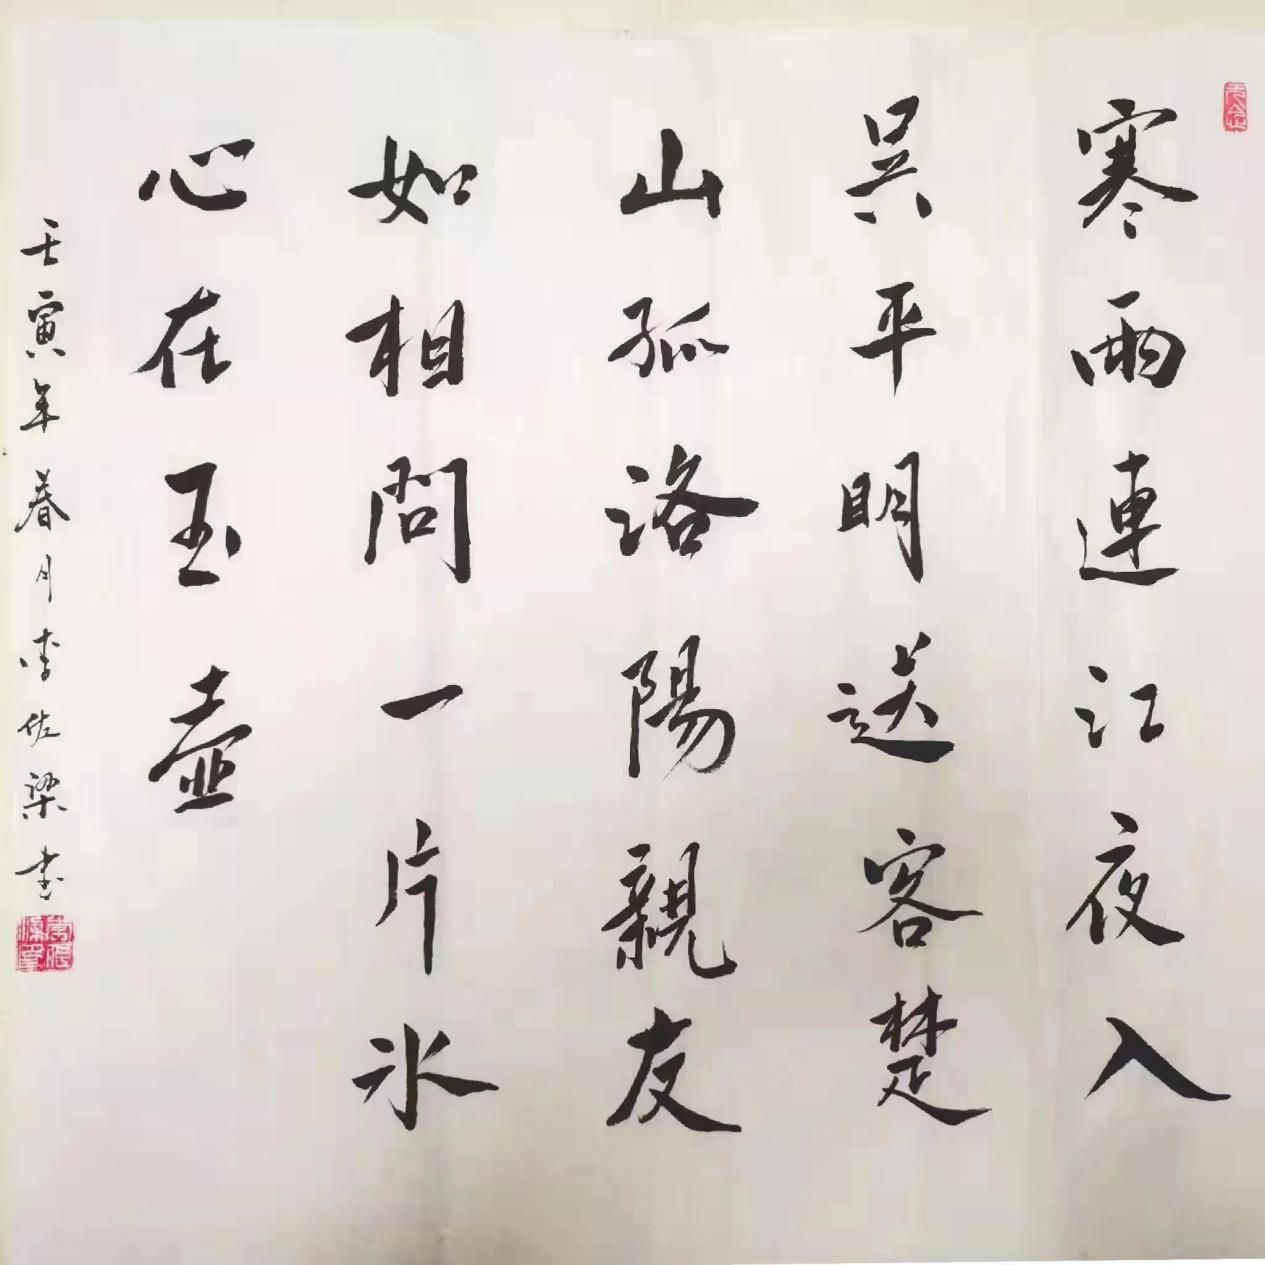 寒雨連江夜入
吴平明送客楚
山孤洛陽親友
如相問一片冰
心在玉壺
壬寅年春月李佐梁書